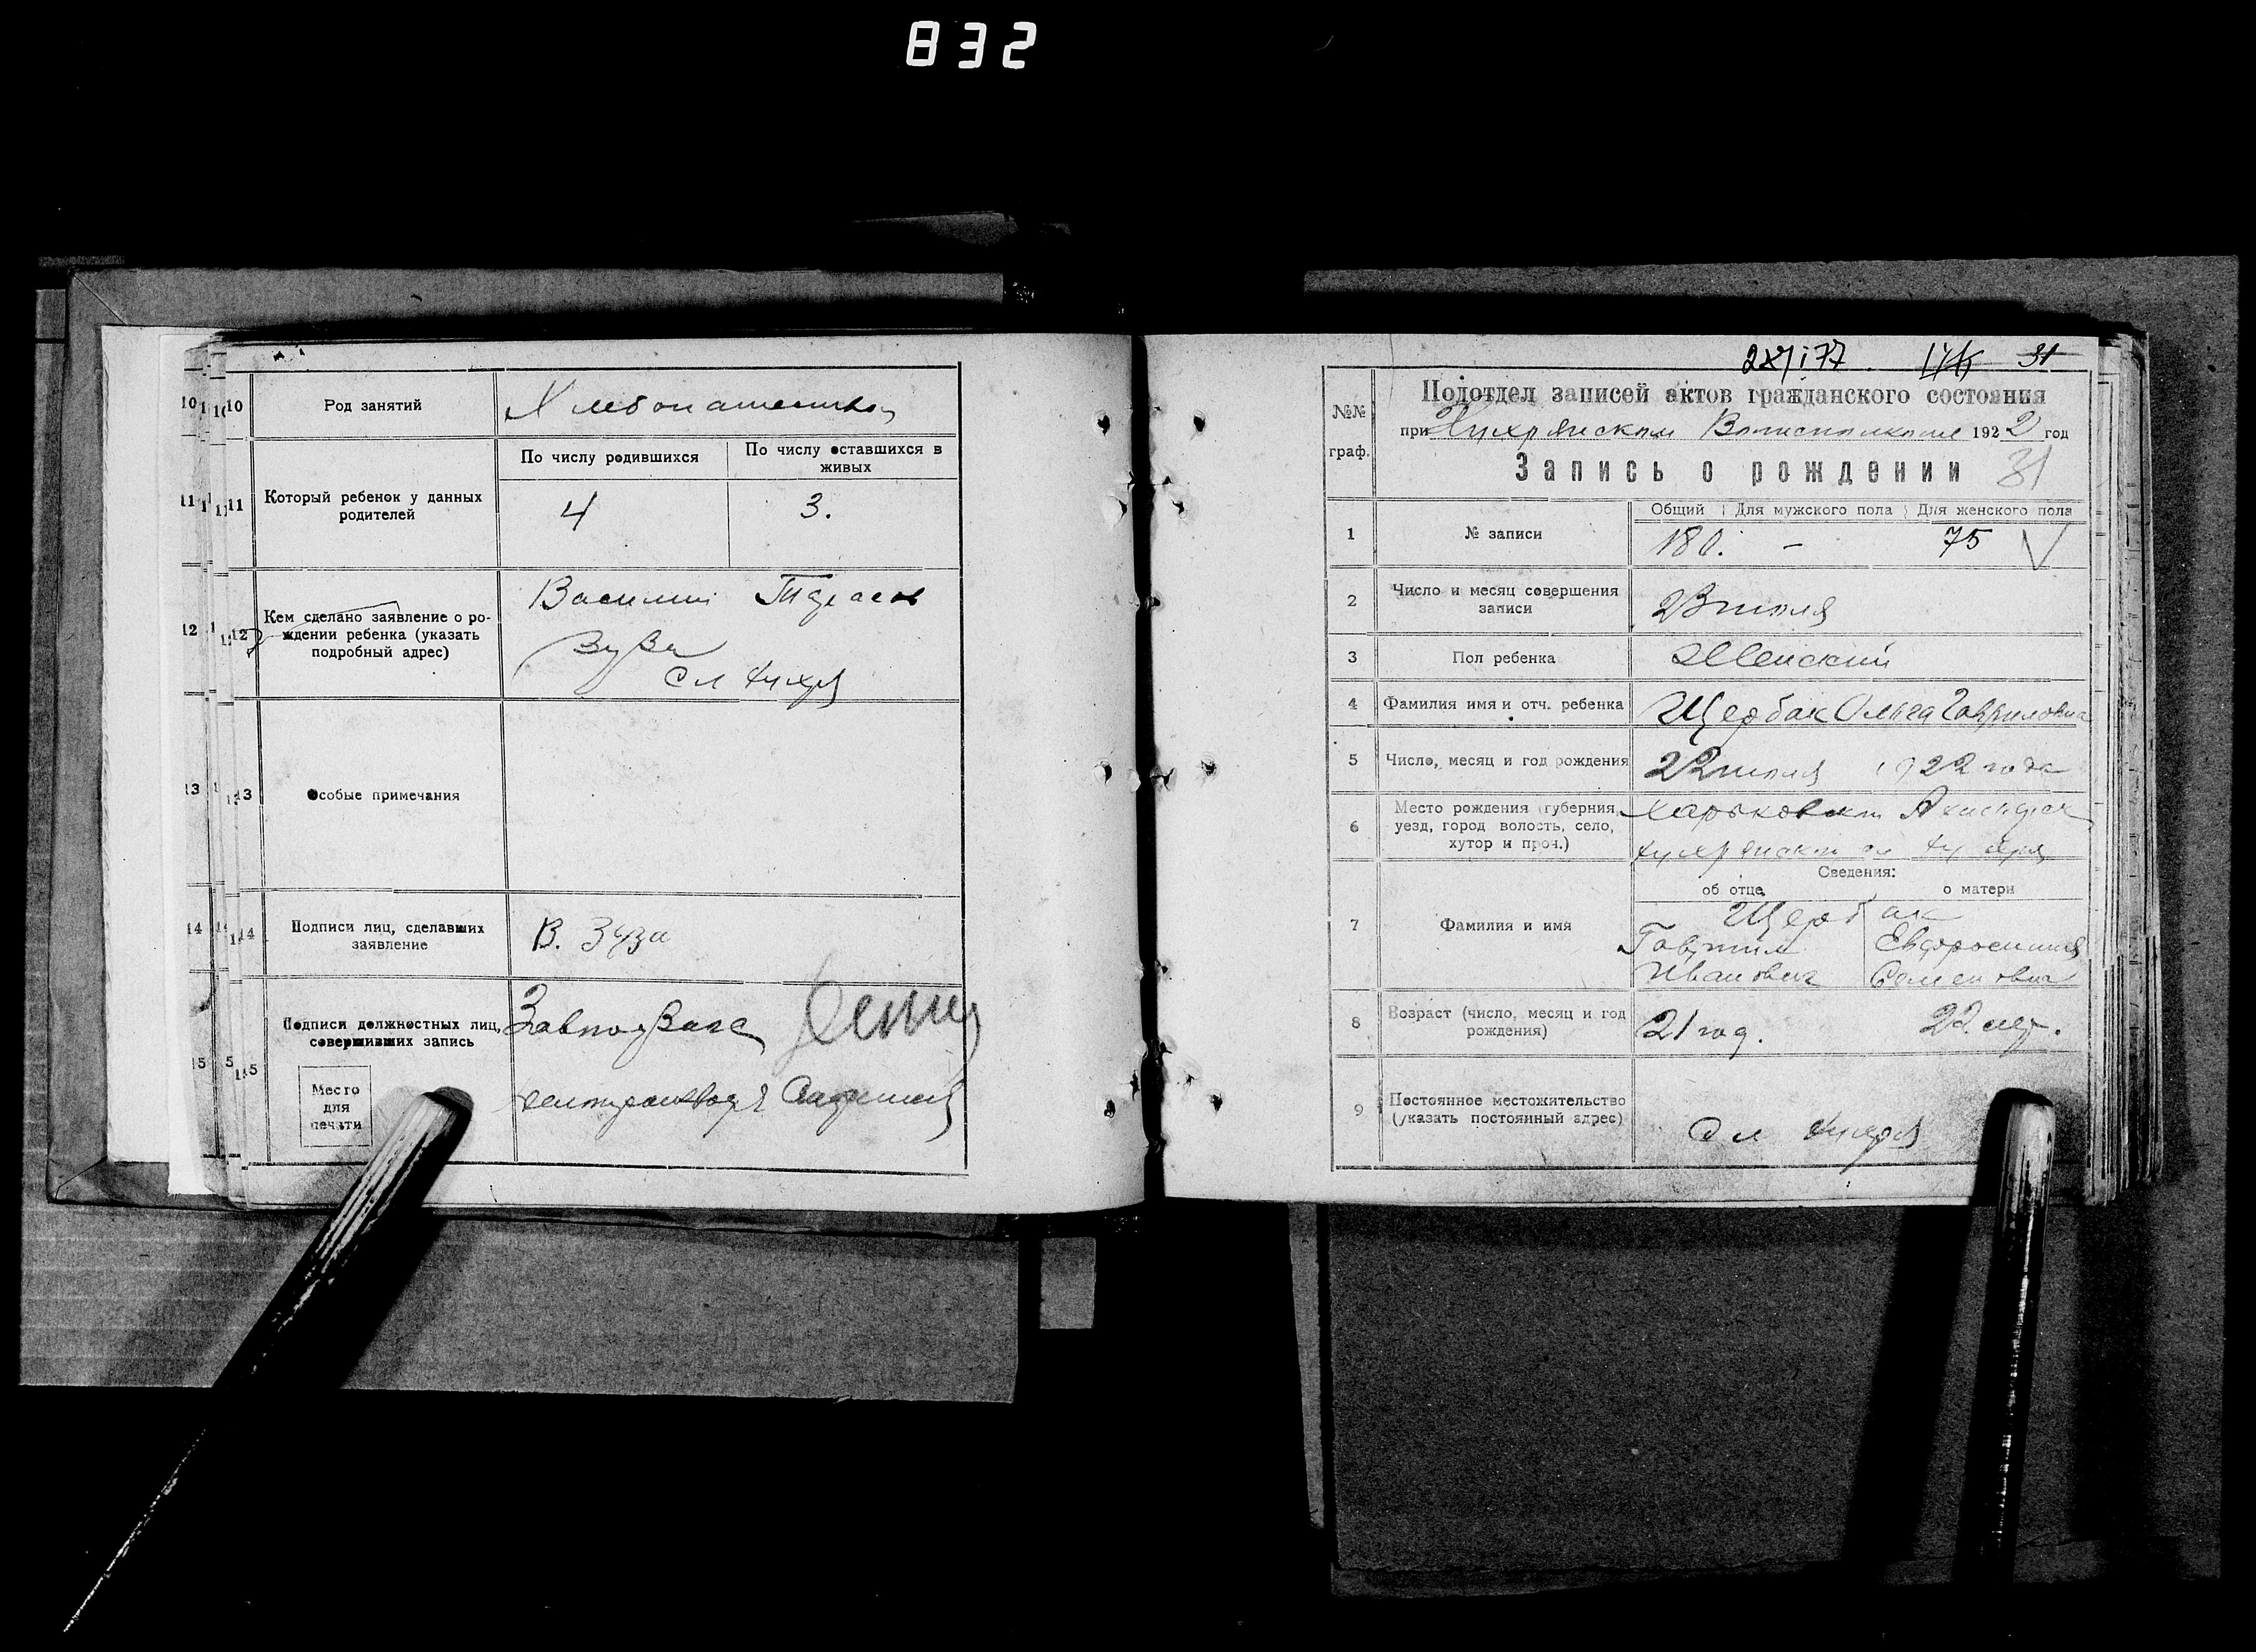 832
10
Род занятий
Хлебопашество
11
Который ребенок у данных родителей
По числу родившихся
По числу оставшихся в живых
4
3.
12
Кем сделано заявление о ро-
ждении ребенка (указать
подробный адрес)
Василий Тарасов
Зуза
Сл
13
Особые примечания
14
Подписи лиц, сделавших
заявление
В. Зуза
15
Подписи должностных лиц,
совершивших запись
Место
для
печати
Завподзагс
31
№№
граф.
Подотдел записей актов гражданского состояния
при 1922 год
Запись о рождении
31
1
№ записи
Общий
Для мужского пола
Для женского пола
180. - 75
2
Число и месяц совершения
записи
23 июля
3
Пол ребенка
Женский
4
Фамилия имя и отч. ребенка
Щербак Ольга Гавриловна
5
Число, месяц и год рождения
22 июля 1922 года
6
Место рождения (губерния,
уезд, город волость, село,
хутор и проч.)
Харьковской
Сведения:
об отце
о матери
7
Фамилия и имя
Щербак
Гавриил
Иванович
Евфросиния
Семеновна
8
Возраст (число, месяц и год
рождения)
21 год.
22 лет.
9
Постоянное местожительство
(указать постоянный адрес)
Сл